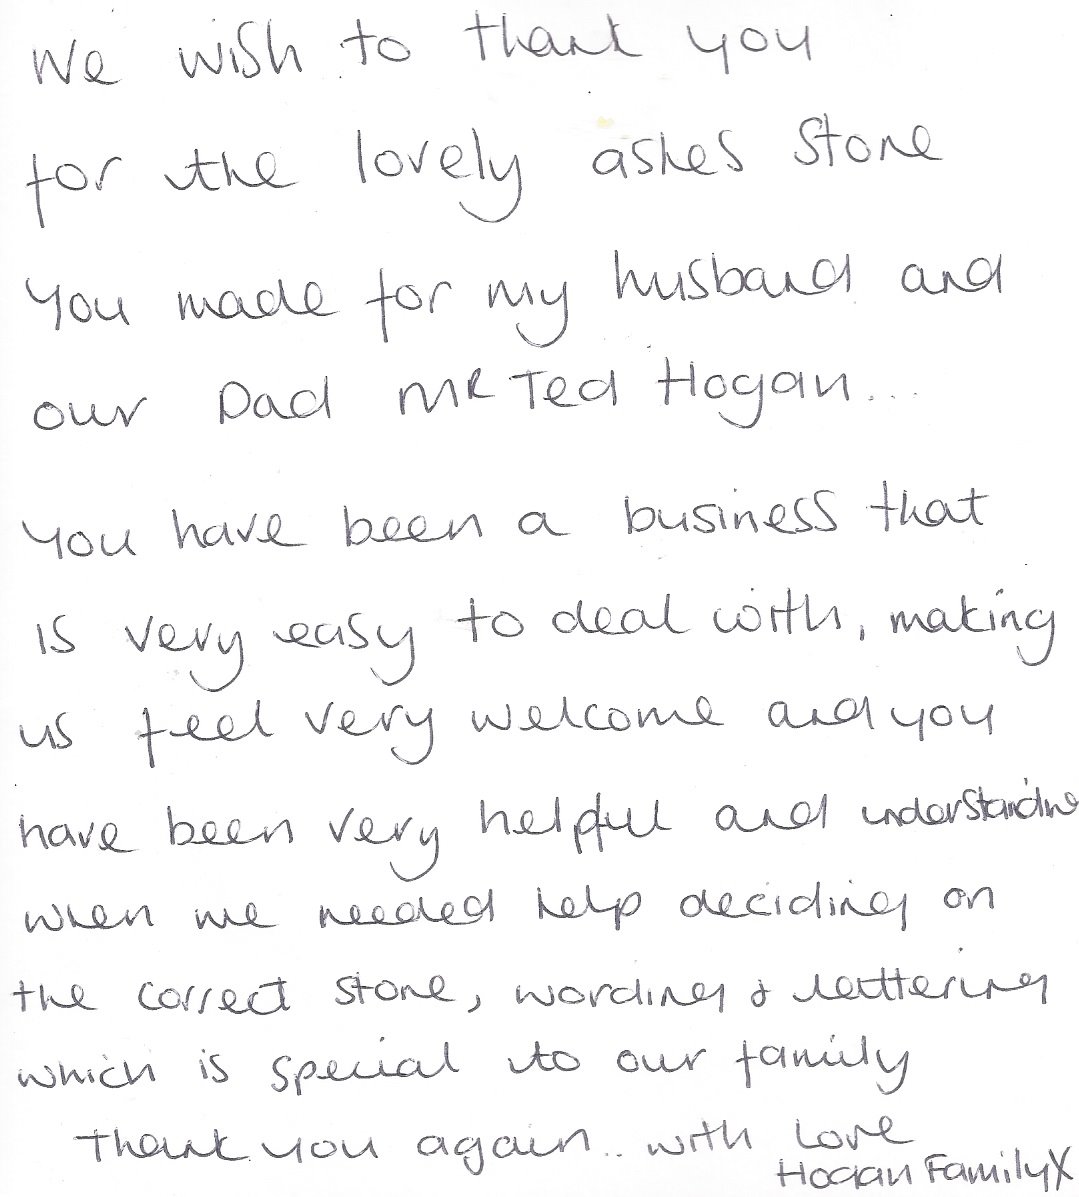 We wish to thank you
for the lovely ashes stone
you made for my husband and
our Dad MR Ted Hogan...
You have been a business that
is very easy to deal with, making
us feel very welcome and you
have been very helpful and understanding
when we needed help deciding on
the correct stone, wording & lettering
which is special to our family
Thank you again.. with love
Hogan Family X